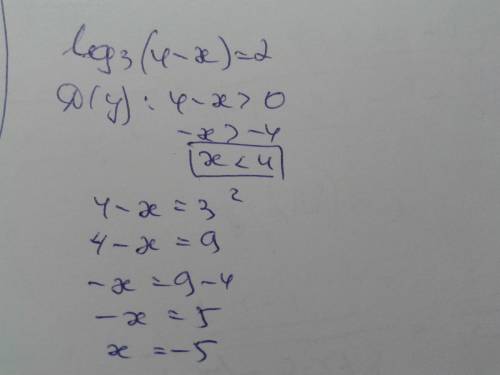 log₃(4-x)=2
D(y): 4-x>0
-x>-4
x<4
4-x=3²
4-x=9
-x=9-4
-x=5
x=-5